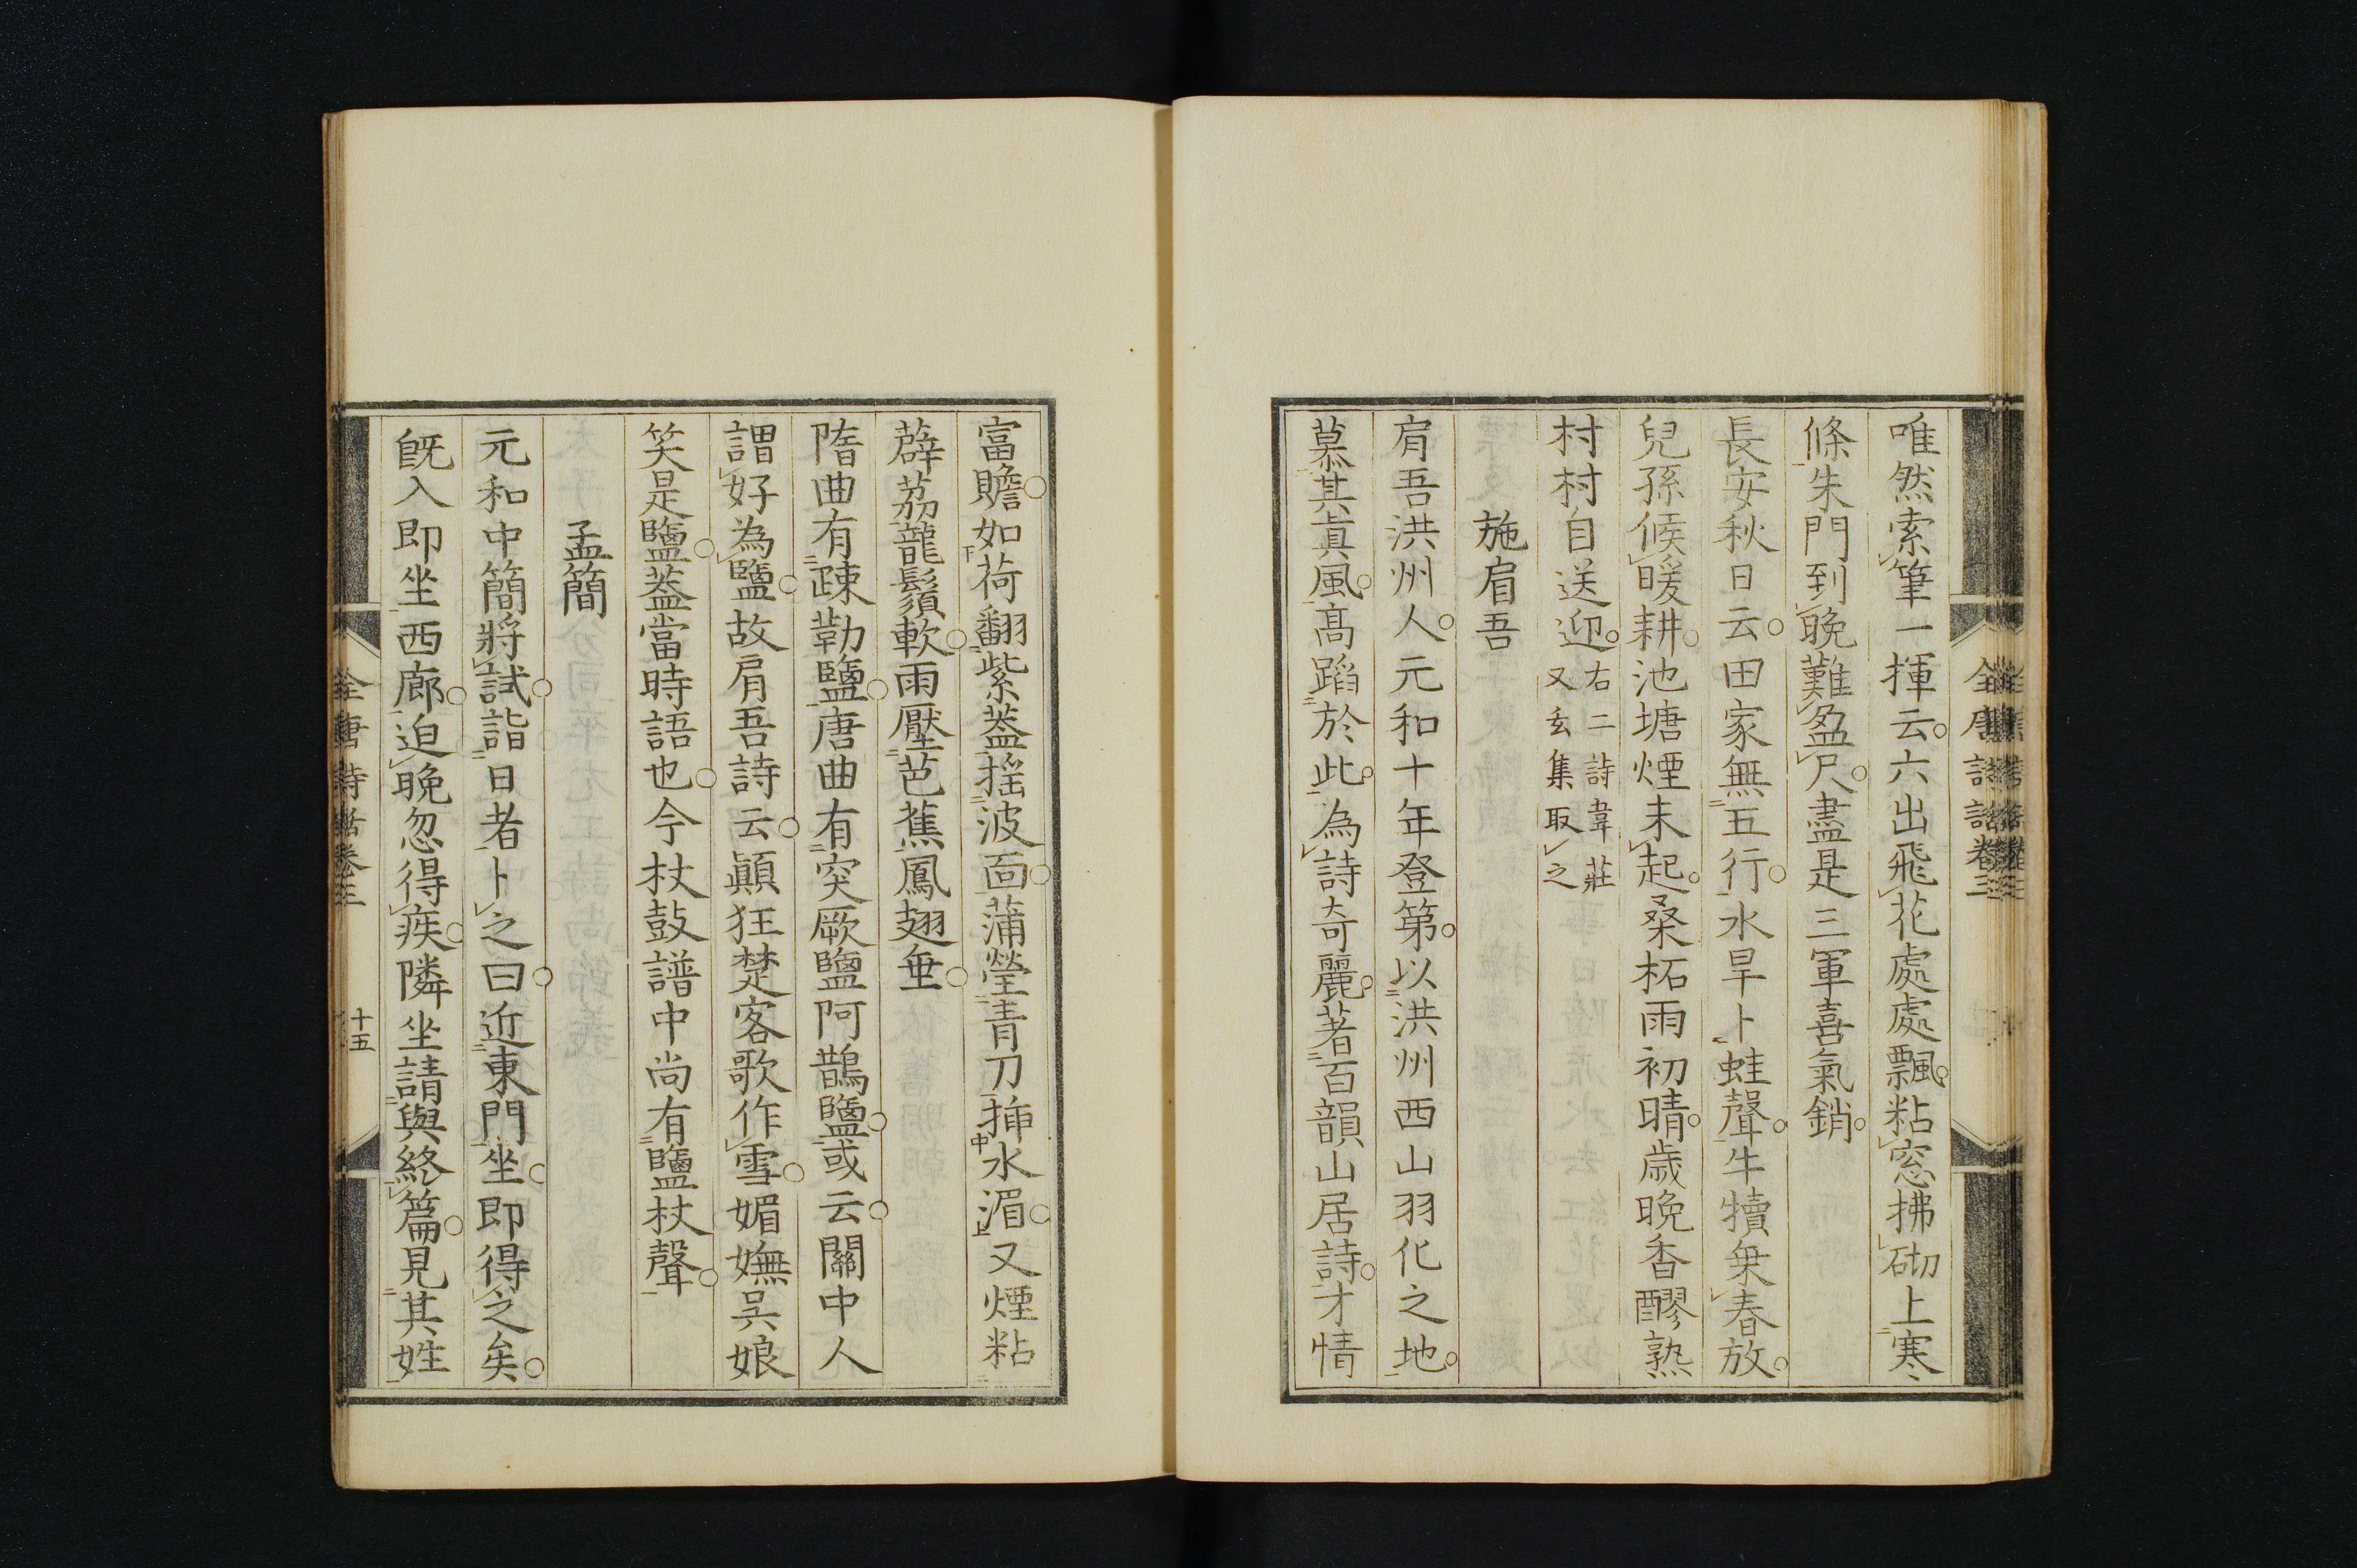 唯然索筆一揮云六出飛花處處飄粘窓拂砌上寒
條朱門到晚難盈尺盡是三軍喜氣銷
長安秋日云田家無五行水旱卜蛙聲牛犢乗春放
兒孫候暖耕池塘煙未起桑柘雨初晴歲晚香醪熟
村村自送迎右二詩韋莊
又玄集取之
施肩吾
肩吾洪州人元和十年登第以洪州西山羽化之地
慕其眞風髙蹈於此為詩奇麗著百韻山居詩才情
富贍如荷翻紫蓋揺波面蒲瑩青刀揷水湄又煙粘
薜茘龍鬚軟雨壓芭蕉鳳翅垂
隋曲有疎勒鹽唐曲有突厥鹽阿鵲鹽或云關中人
謂好為鹽故肩吾詩云顚狂楚客歌作雪媚嫵吳娘
笑是鹽葢當時語也今杖鼓譜中尚有鹽杖聲
孟簡
元和中簡將試詣日者卜之曰近東門坐即得之矣
旣入即坐西廊迫晚忽得疾隣坐請與終篇見其姓
全唐詩話卷三
十五
全唐詩話卷三